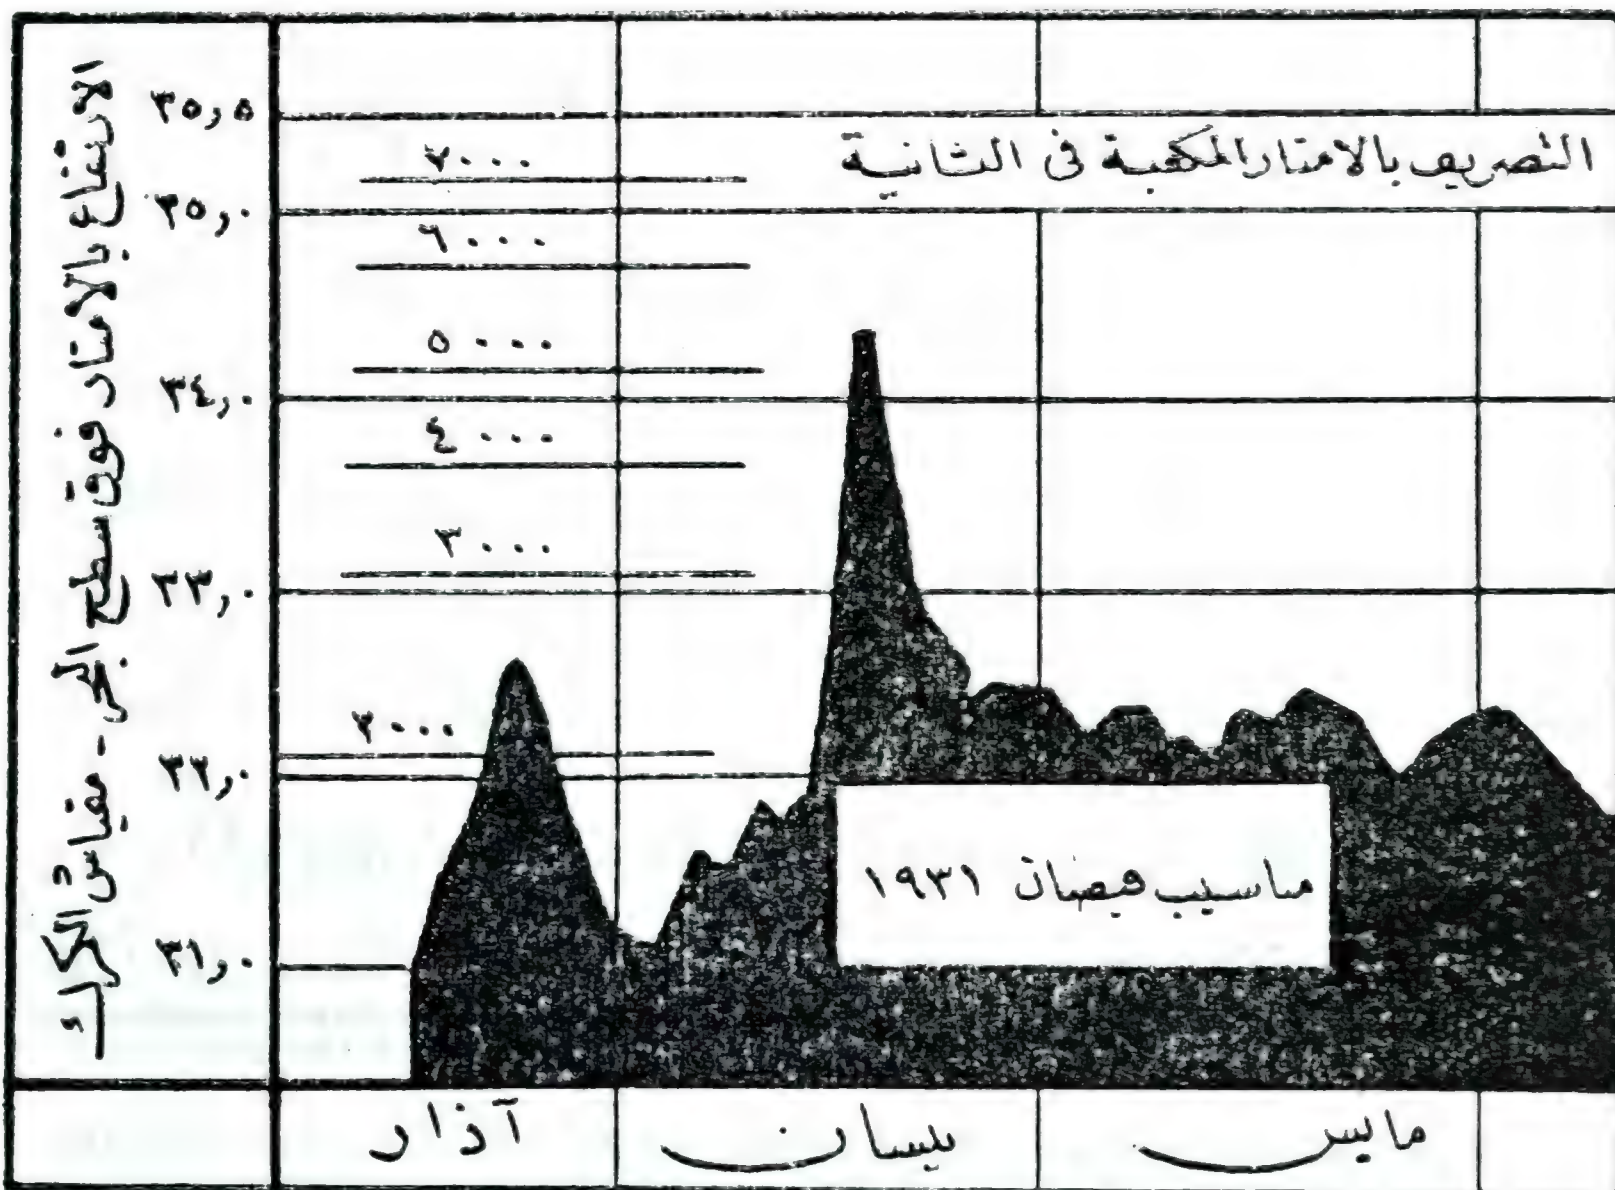 الارتفاع بالامتار فوق سطح البحر - مقياس الكرك
٣٥,٥
٣٥,٠
٣٤,٠
٣٣,٠
٣٢,٠
٣١,٠
التصريف بالامتار المكعبة في الثانية
٧٠٠٠
٦٠٠٠
٥٠٠٠
٤٠٠٠
٣٠٠٠
٢٠٠٠
مناسيب فيضان ١٩٣١
آذار
نيسان
مايس